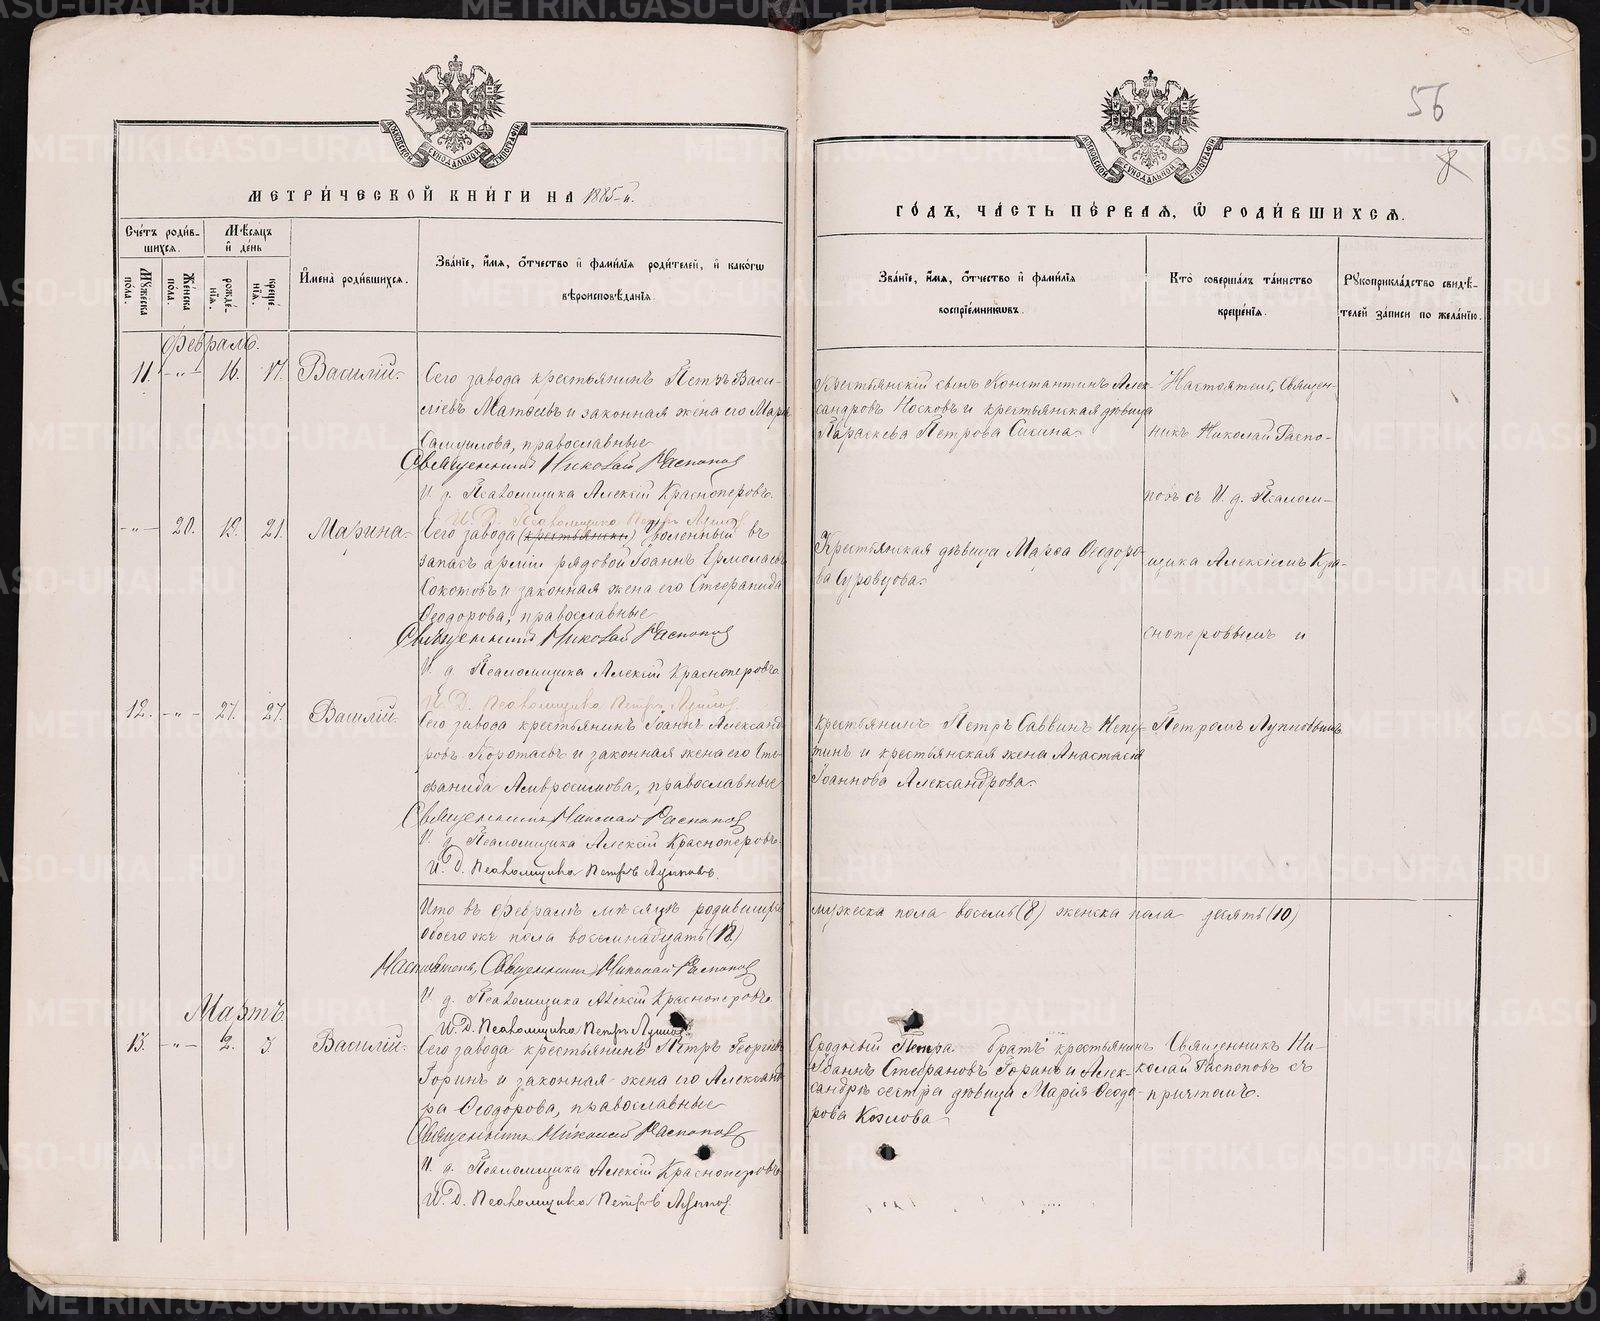 56
8
МОСКОВСКОЙ СУНОДАЛЬНОЙ ТИПОГРАФІИ
МЕТРИЧЕСКОЙ КНИГИ НА 1885-й.
Счетъ родившихся.
Мѣсяцъ и день
Мужеска пола.
Женска пола.
рожденія.
крещенія.
Имена родившихся.
Званіе, имя, отчество и фамилія родителей, и какогѡ
вѣроисповѣданія.
Февраль.
11. -"- 16. 17. Василій.
Сего завода крестьянинъ Петръ Васи-
ліевъ Матвеевъ и законная жена его Марѳа
Самуилова, православные
Священникъ Николай Распоповъ
И. д. Псаломщика Алексій Красноперовъ.
И. Д. Псаломщика Петръ Лупповъ
-"- 20. 19. 21. Марина.
Сего завода (крестьянинъ) Уволенный въ
запасъ арміи рядовой Іоаннъ Ермолаевъ
Сокотовъ и законная жена его Стефанида
Ѳеодорова, православные
Священникъ Николай Распоповъ
И. д. Псаломщика Алексій Красноперовъ.
И. Д. Псаломщика Петръ Лупповъ
12. -"- 27. 27. Василій.
Сего завода крестьянинъ Іоаннъ Александ-
ровъ и законная жена его Сте-
фанида Амвросимова, православные
Священникъ Николай Распоповъ
И. д. Псаломщика Алексій Красноперовъ.
И. Д. Псаломщика Петръ Лупповъ.
Итого въ Февралѣ мѣсяцѣ родившихся
Обоего же пола восемнадцать (18.)
Настоятель, Священникъ Николай Распоповъ
И. д. Псаломщика Алексій Красноперовъ.
И. Д. Псаломщика Петръ Лупповъ.
Мартъ.
13. -"- 2. 3. Василій.
Сего завода крестьянинъ Петръ Георгіевъ
Горинъ и законная жена его Александ-
ра Ѳеодорова, православные
Священникъ Николай Распоповъ
И. д. Псаломщика Алексій Красноперовъ
И. Д. Псаломщика Петръ Лупповъ.
МОСКОВСКОЙ СУНОДАЛЬНОЙ ТИПОГРАФІИ
ГОДЪ, ЧАСТЬ ПЕРВАЯ, Ѡ РОДИВШИХСЯ.
Званіе, имя, отчество и фамилія
воспріемниковъ.
Кто совершалъ таинство
крещенія.
Рукоприкладство свидѣ-
телей записи по желанію.
Крестьянскій сынъ Константинъ Алек-
сандровъ Носковъ и крестьянская дѣвица
Параскева Петрова Сисина.
Крестьянская дѣвица Марѳа Ѳеодоро-
ва Суровцова.
крестьянинъ Петръ Саввинъ Непе-
тинъ и крестьянская жена Анастасія
Іоаннова Александрова.
Настоятель, Священ-
никъ Николай Распо-
повъ съ И. д. Псалом-
щика Алексіемъ Кра-
сноперовымъ и
Петромъ Лупповымъ
мужеска пола восемь (8) женска пола десять (10)
Сродный Петра братъ крестьянинъ
Іоаннъ Стефановъ Горинъ и Алек-
сандры сестра дѣвица Марія Ѳеодо-
рова Козлова
Священникъ Ни-
колай Распоповъ съ
причтомъ.
METRIKI.GASO-URAL.RU